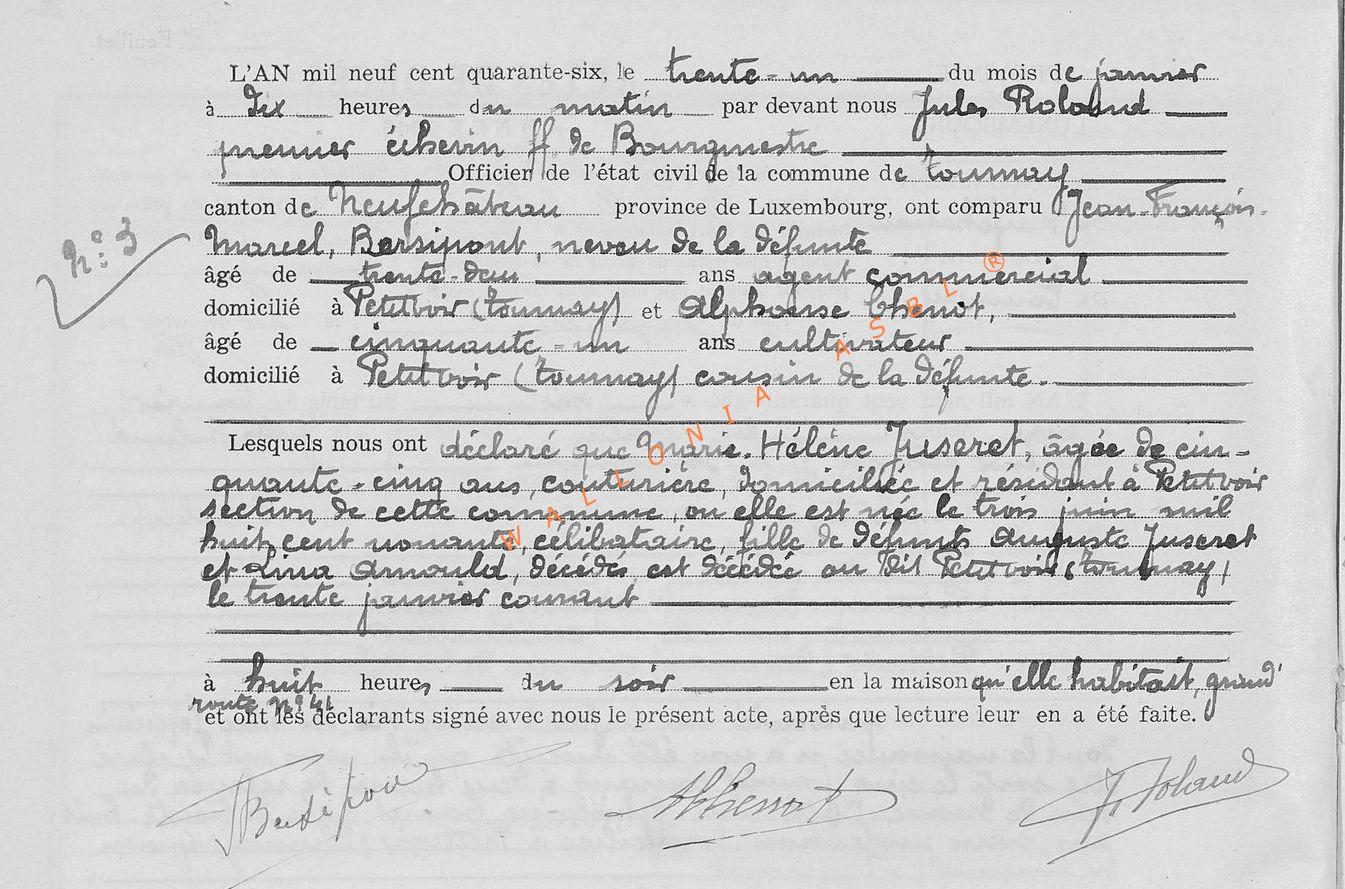 L'AN mil neuf cent quarante-six, le trente-un du mois de janvier
à dix heures du matin par devant nous Jules Roland
premier échevin ff de Bourgmestre
Officier de l'état civil de la commune de tournay
canton de Neufchâteau province de Luxembourg, ont comparu Jean-François-
n° 3
Marcel, Bersipont, neveu de la défunte
âgé de trente-deux ans agent commercial
domicilié à Petitvoir (tournay) et Alphonse Chenot,
âgé de cinquante-un ans cultivateur
domicilié à Petitvoir (tournay) cousin de la défunte.
Lesquels nous ont déclaré que Marie-Hélène Juseret, âgée de cin-
quante-cinq ans, couturière, domiciliée et résidant à Petitvoir
section de cette commune, où elle est née le trois juin mil
huit cent nonante, célibataire, fille de défunts Auguste Juseret
et Lina Arnould, décédés, est décédée au dit Petitvoir (tournay)
le trente janvier courant
à huit heures du soir en la maison qu'elle habitait, grand'
route, n° 41
et ont les déclarants signé avec nous le présent acte, après que lecture leur en a été faite.
AChenot J Roland
WALLONIA ASBL ®